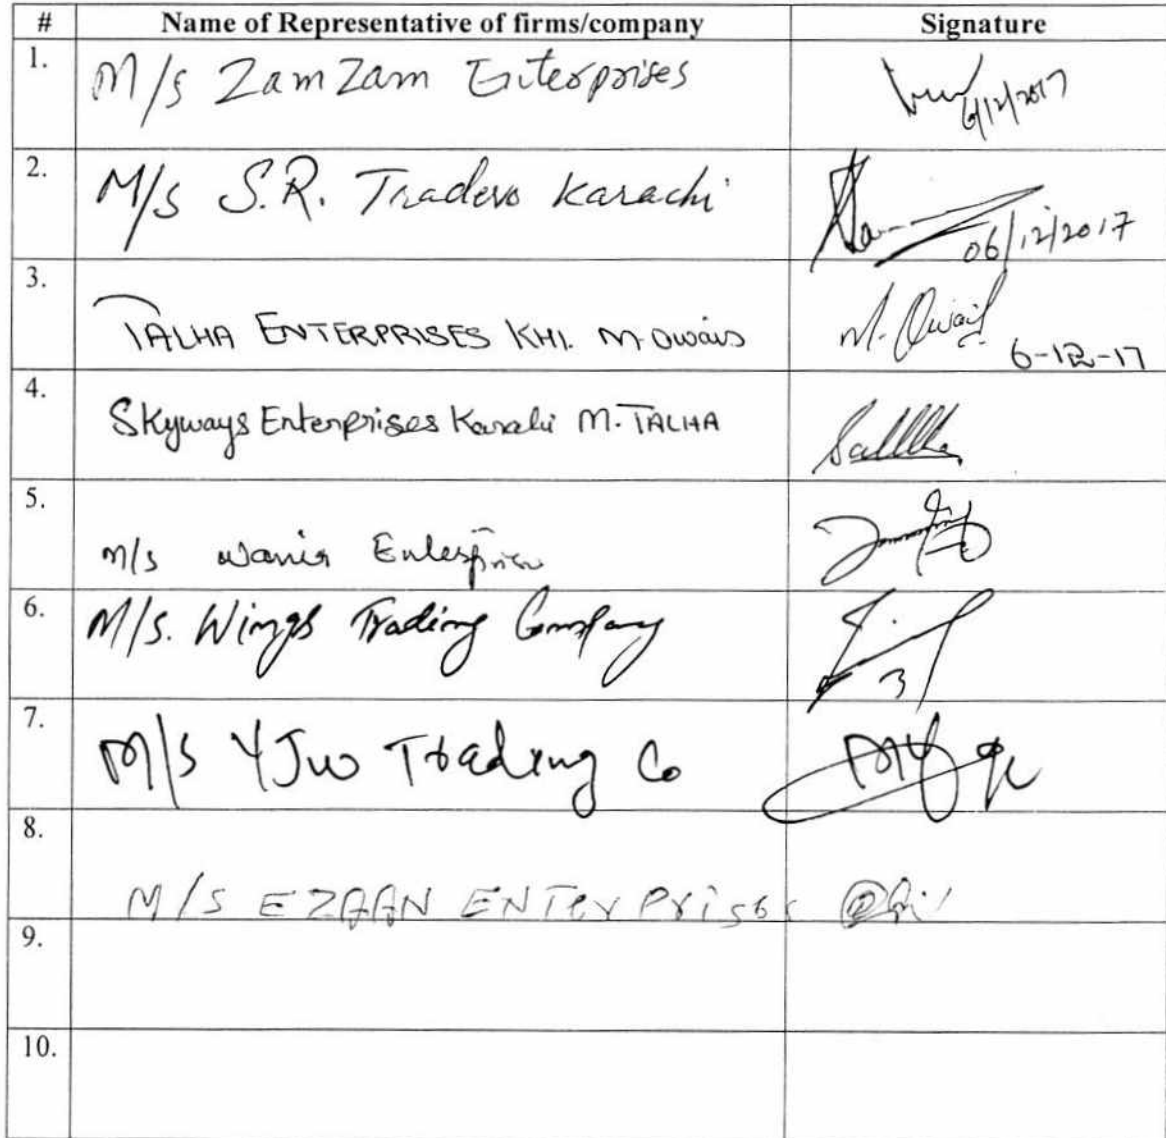 # Name of Representative of firms/company Signature
1. M/s ZamZam Enterprises 6/12/2017
2. M/s S.R. Traders Karachi 06/12/2017
3. TALHA ENTERPRISES KHI. M. Owais M. Owais 6-12-17
4. Skyways Enterprises Karachi M. TALHA
5. M/s Enterprises
6. M/s. Wings Trading Company
7. M/s Trading Co
8. M/S EZAAN ENTerPrises
9.
10.